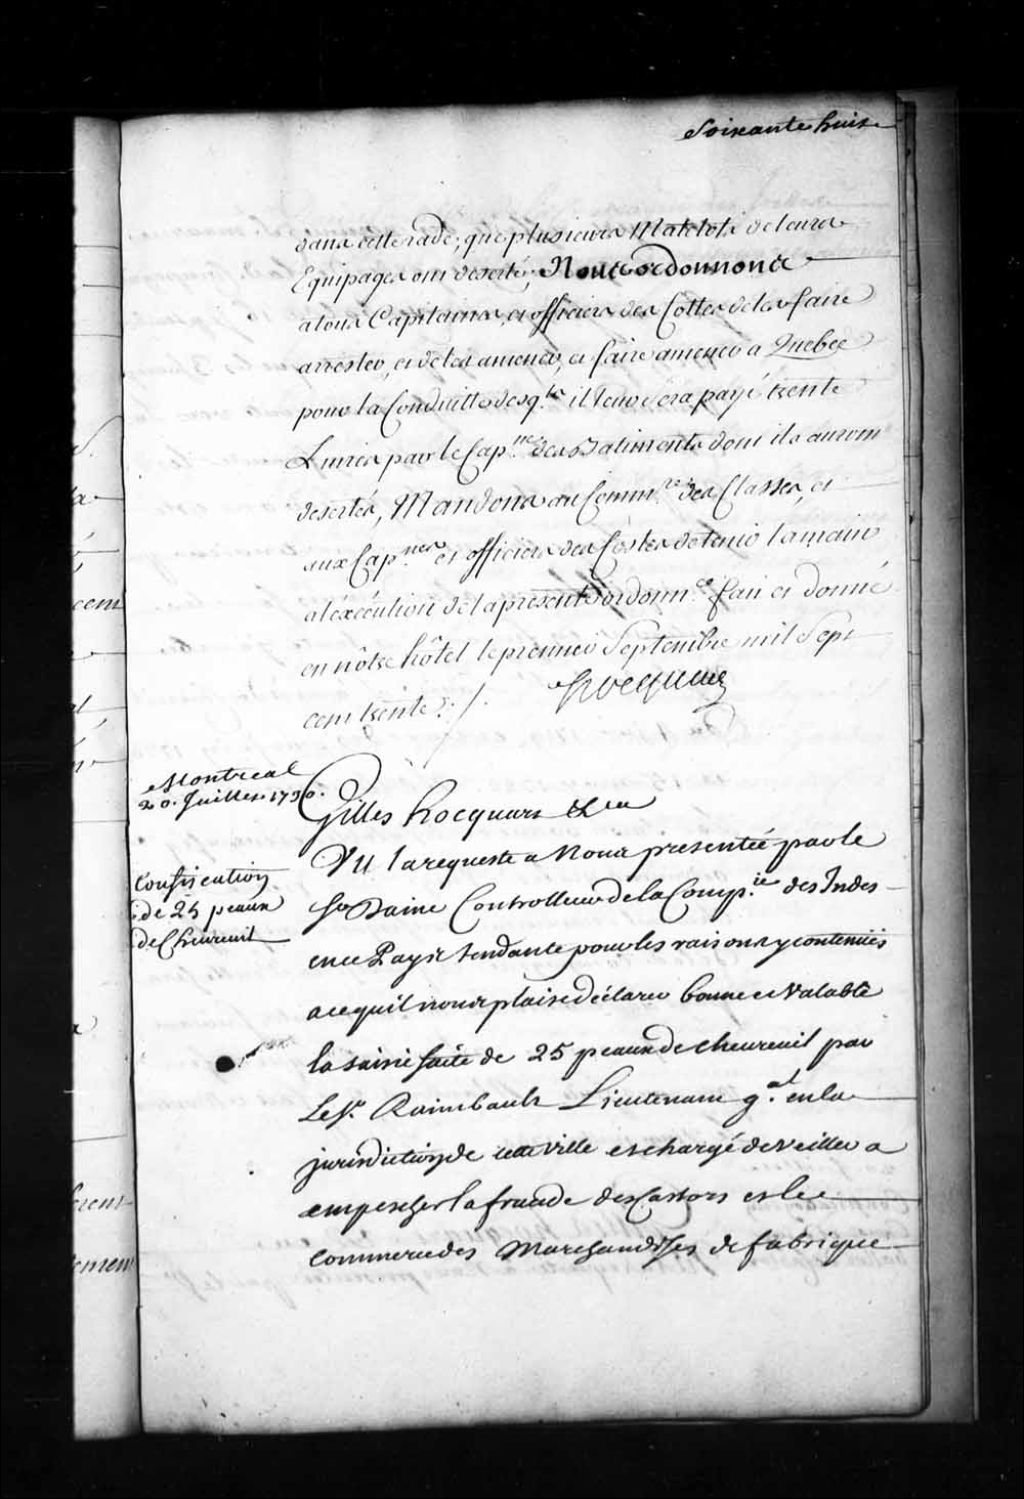 Soixante huit
dans cette rade, que plusieurs Matelots de leurs
Equipages ont deserté; Nous ordonnons
a tous Capitaines, et officiers des Costes de les faire
arrester, et de les amener, et faire amener a Quebec
pour la Conduitte desq.ls il leur sera payé trente
Livres par le Cap.ne des Batiments dont ils auront
desertés, Mandons au Comm.re des Classes, et
aux Cap.nes et officiers des Costes de tenir la main
a l'éxécution de la presente ordonn.ce fait et donné
en nôtre hôtel le premier Septembre mil Sept
cent trente ./.
Hocquart
Montreal
20. Juillet 1730.
Gilles hocquart &ca
Confiscation
de 25 peaux
de Cheureuil
Vu la requeste a Nous presentée par le
Sr Daine Controlleur de la Comp.ie des Indes
en ce Pays tendante pour les raisons y contenües
a ce quil nous plaise déclarer bonne et Valable
la saisie faite de 25 peaux de cheureuil par
Le Sr. Raimbault Lieutenant g.al en la
jurisdiction de cette ville et chargé de veiller a
empescher la fraude des Castors et le
commerce des Marchandises de fabrique